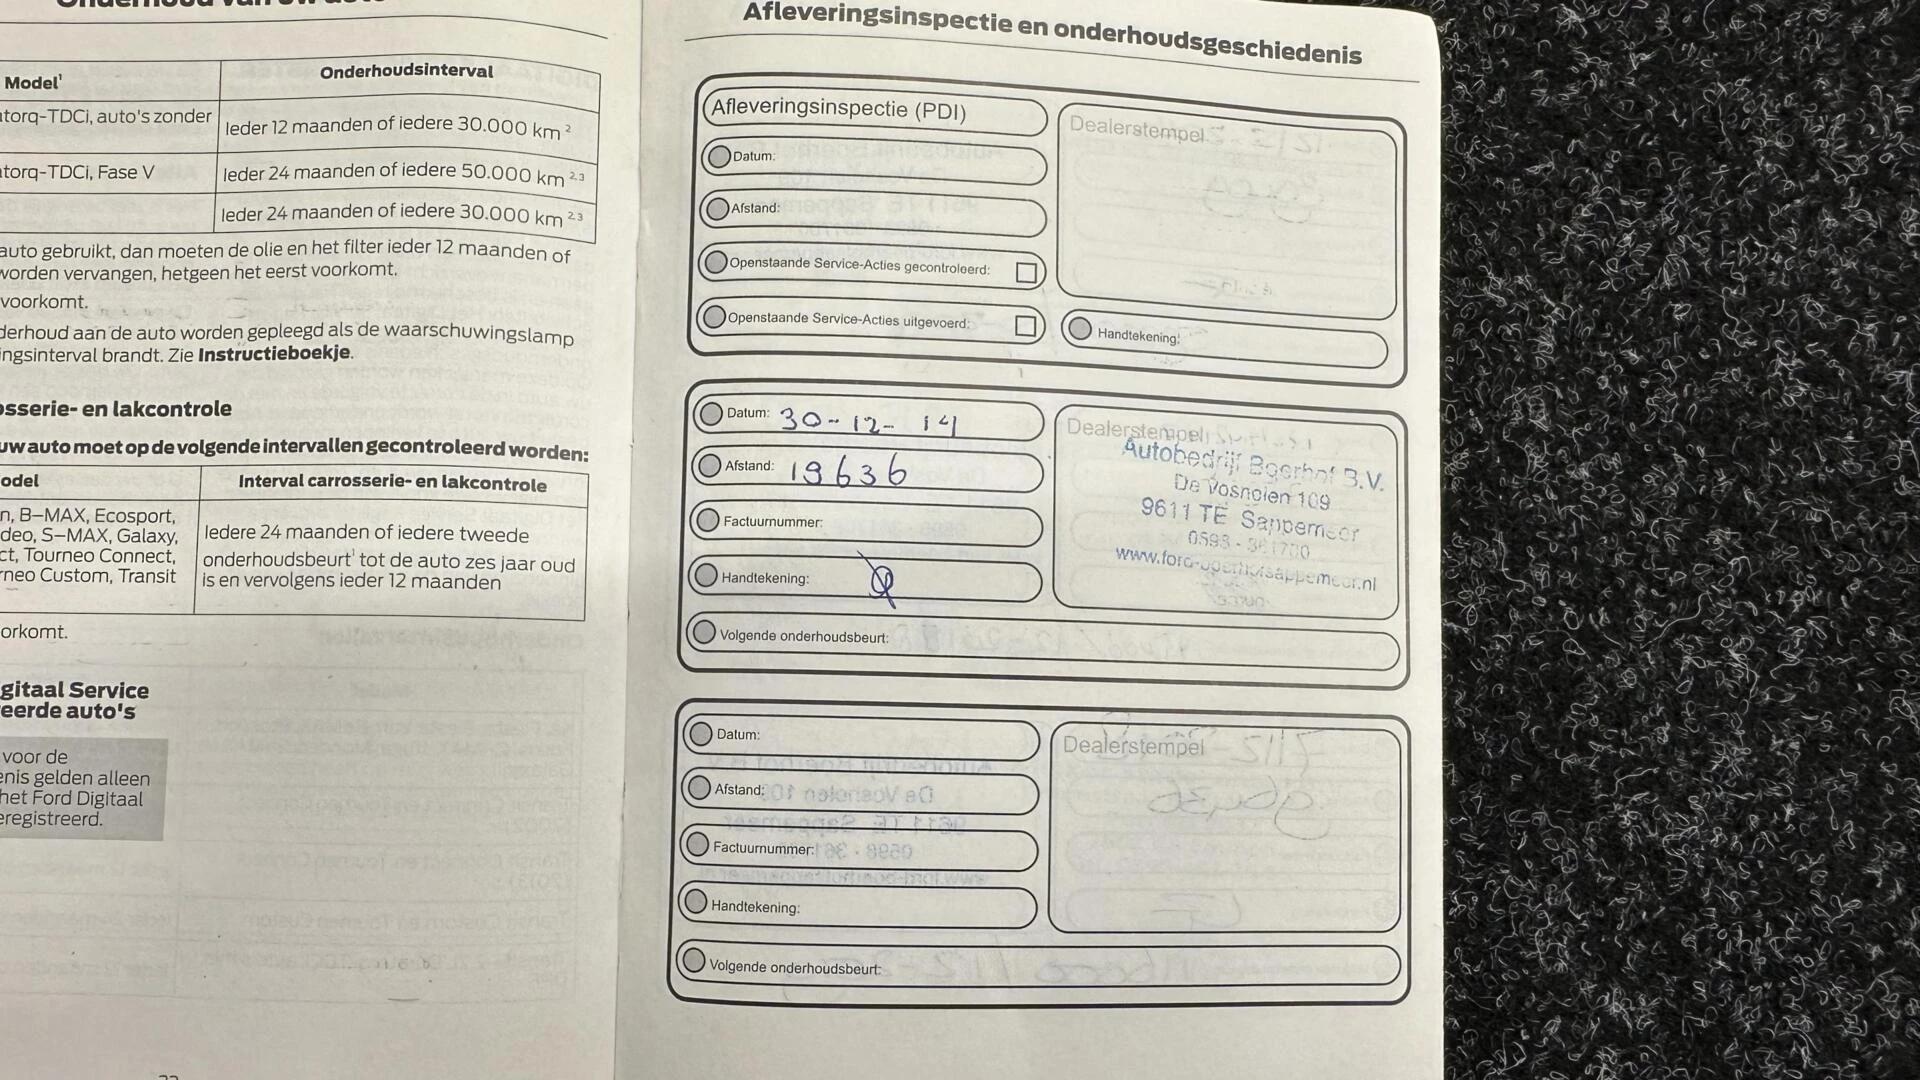 Onderhoud van uw auto
Model¹
Onderhoudsinterval
torq-TDCi, auto's zonder
Ieder 12 maanden of iedere 30.000 km ²
torq-TDCi, Fase V
Ieder 24 maanden of iedere 50.000 km ²·³
Ieder 24 maanden of iedere 30.000 km ²·³
auto gebruikt, dan moeten de olie en het filter ieder 12 maanden of
worden vervangen, hetgeen het eerst voorkomt.
voorkomt.
derhoud aan de auto worden gepleegd als de waarschuwingslamp
ingsinterval brandt. Zie Instructieboekje.
osserie- en lakcontrole
uw auto moet op de volgende intervallen gecontroleerd worden:
odel
Interval carrosserie- en lakcontrole
n, B–MAX, Ecosport,
deo, S–MAX, Galaxy,
ct, Tourneo Connect,
rneo Custom, Transit
Iedere 24 maanden of iedere tweede
onderhoudsbeurt¹ tot de auto zes jaar oud
is en vervolgens ieder 12 maanden
orkomt.
gitaal Service
eerde auto's
voor de
enis gelden alleen
het Ford Digitaal
eregistreerd.
Afleveringsinspectie en onderhoudsgeschiedenis
Afleveringsinspectie (PDI)
Datum:
Afstand:
Openstaande Service-Acties gecontroleerd:
Openstaande Service-Acties uitgevoerd:
Dealerstempel
Handtekening:
Datum: 30-12-14
Afstand: 19636
Factuurnummer:
Handtekening:
Volgende onderhoudsbeurt:
Dealerstempel
Autobedrijf Boerhof B.V.
De Vosholen 109
9611 TE Sappemeer
0598 - 361700
www.ford-boerhofsappemeer.nl
Datum:
Afstand:
Factuurnummer:
Handtekening:
Volgende onderhoudsbeurt:
Dealerstempel